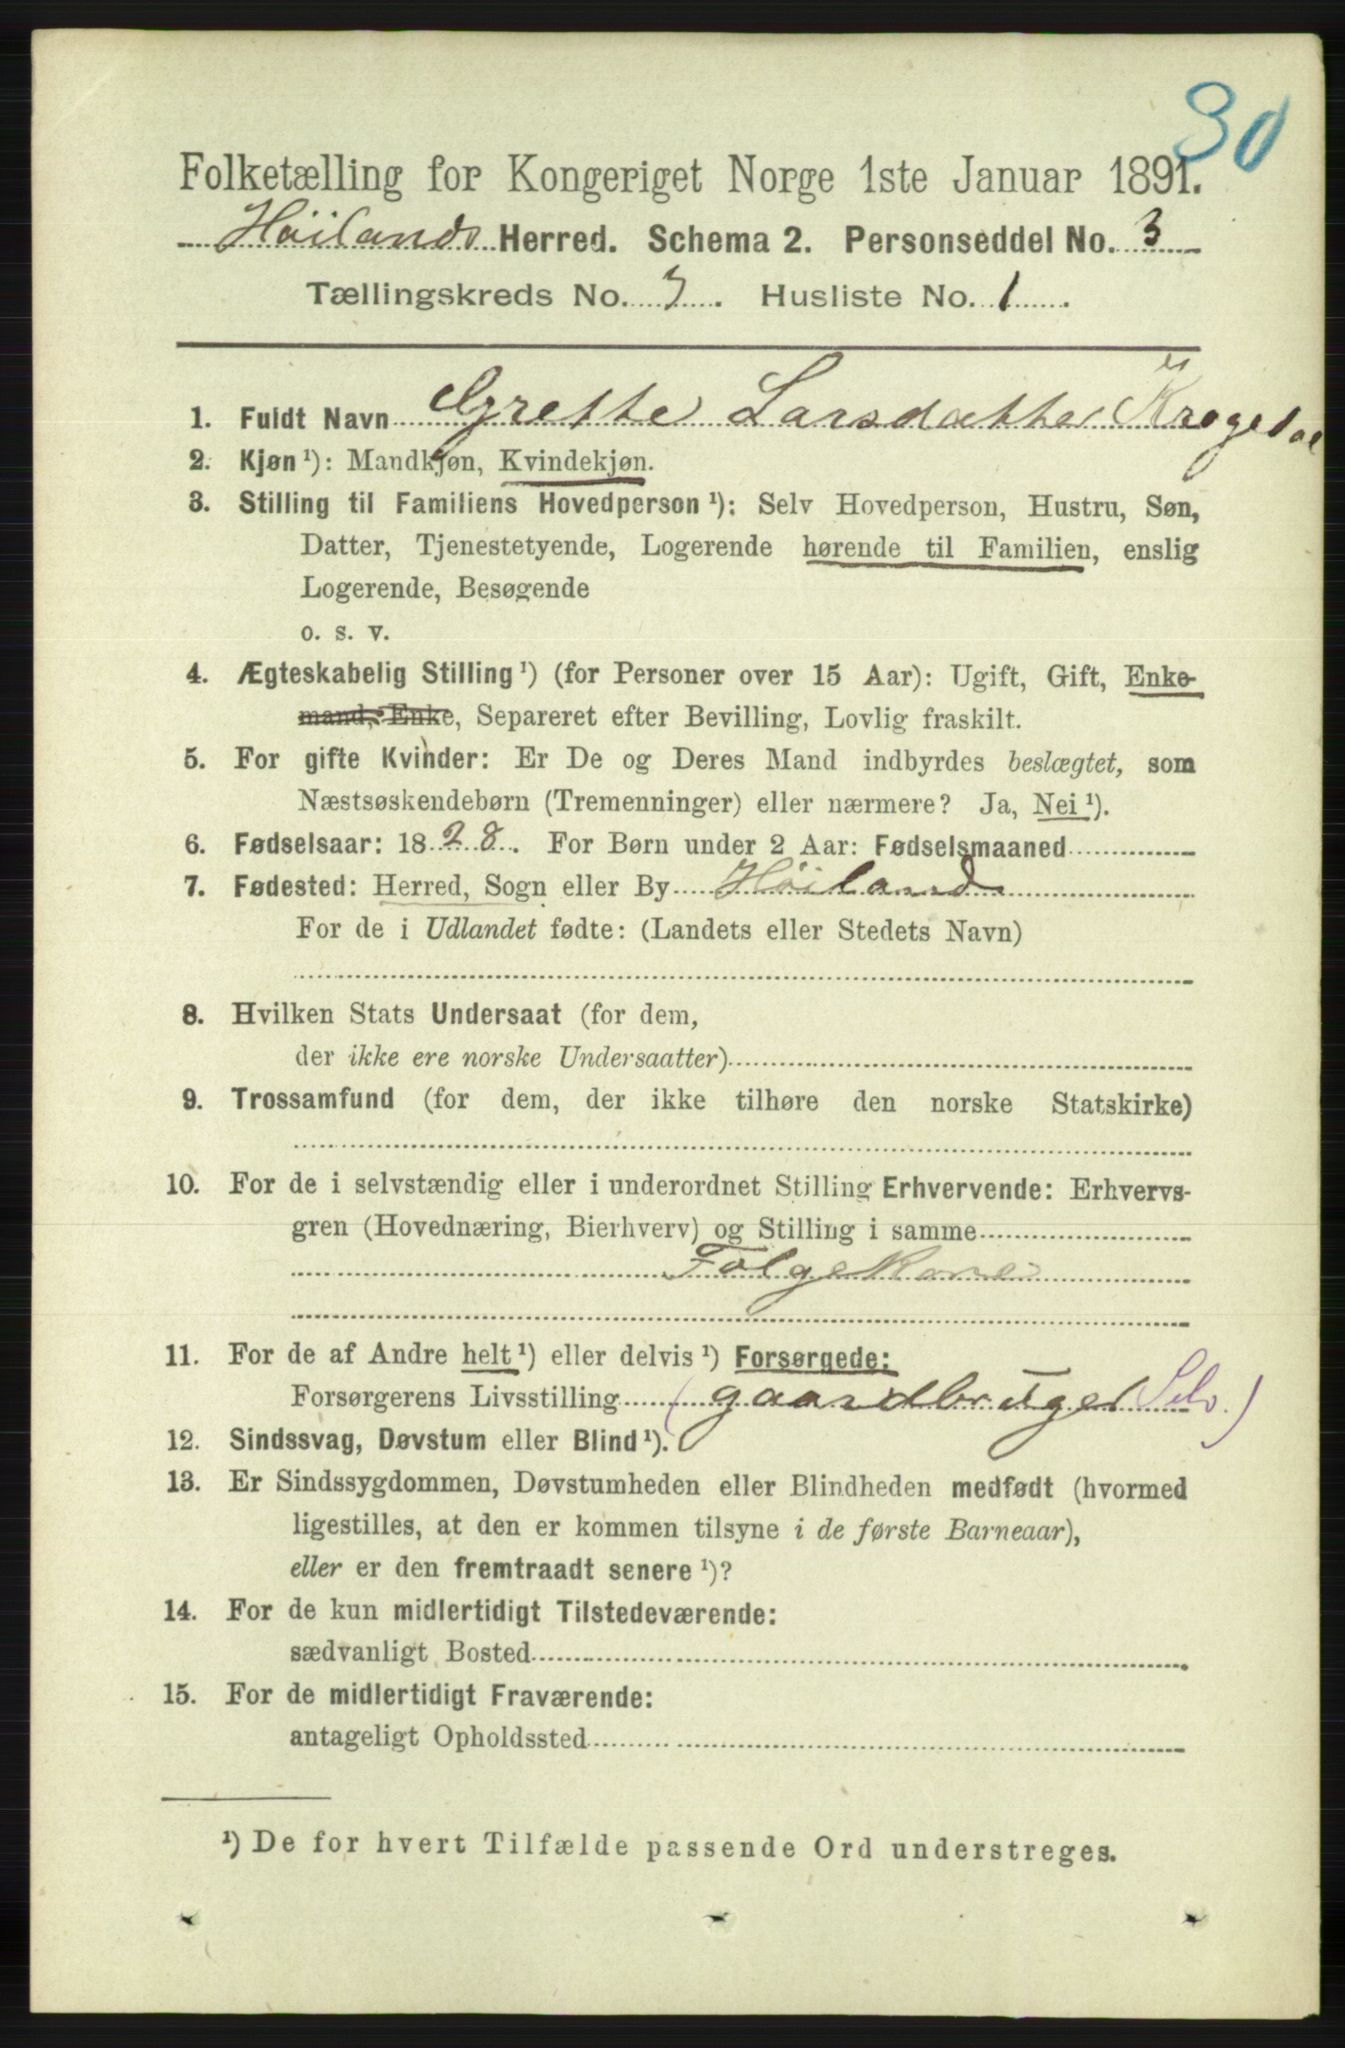 30
Folketælling for Kongeriget Norge 1ste Januar 1891.
Höilands Herred. Schema 2. Personseddel No. 3
Tællingskreds No. 3. Husliste No. 1.
1. Fuldt Navn Grethe Larsdatter Krogedal
2. Kjøn ¹): Mandkjøn, Kvindekjøn.
3. Stilling til Familiens Hovedperson ¹): Selv Hovedperson, Hustru, Søn,
Datter, Tjenestetyende, Logerende hørende til Familien, enslig
Logerende, Besøgende
o. s. v.
4. Ægteskabelig Stilling ¹) (for Personer over 15 Aar): Ugift, Gift, Enke-
mand, Enke, Separeret efter Bevilling, Lovlig fraskilt.
5. For gifte Kvinder: Er De og Deres Mand indbyrdes beslægtet, som
Næstsøskendebørn (Tremenninger) eller nærmere? Ja, Nei ¹).
6. Fødselsaar: 1828. For Børn under 2 Aar: Fødselsmaaned
7. Fødested: Herred, Sogn eller By Höiland
For de i Udlandet fødte: (Landets eller Stedets Navn)
8. Hvilken Stats Undersaat (for dem,
der ikke ere norske Undersaatter)
9. Trossamfund (for dem, der ikke tilhøre den norske Statskirke)
10. For de i selvstændig eller i underordnet Stilling Erhvervende: Erhvervs-
gren (Hovednæring, Bierhverv) og Stilling i samme
Folgekone
11. For de af Andre helt ¹) eller delvis ¹) Forsørgede:
Forsørgerens Livsstilling (gaardbruger Selv.)
12. Sindssvag, Døvstum eller Blind ¹).
13. Er Sindssygdommen, Døvstumheden eller Blindheden medfødt (hvormed
ligestilles, at den er kommen tilsyne i de første Barneaar),
eller er den fremtraadt senere ¹)?
14. For de kun midlertidigt Tilstedeværende:
sædvanligt Bosted
15. For de midlertidigt Fraværende:
antageligt Opholdssted
¹) De for hvert Tilfælde passende Ord understreges.